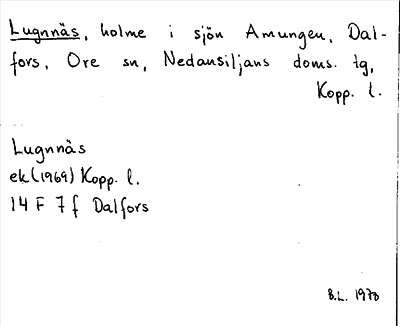 Lugnnäs, holme i sjön Amungen, Dal-
fors, Ore sn, Nedansiljans doms. tg,
Kopp. l.
Lugnnäs
ek (1969) Kopp. l.
14 F 7 f Dalfors
B.L. 1970